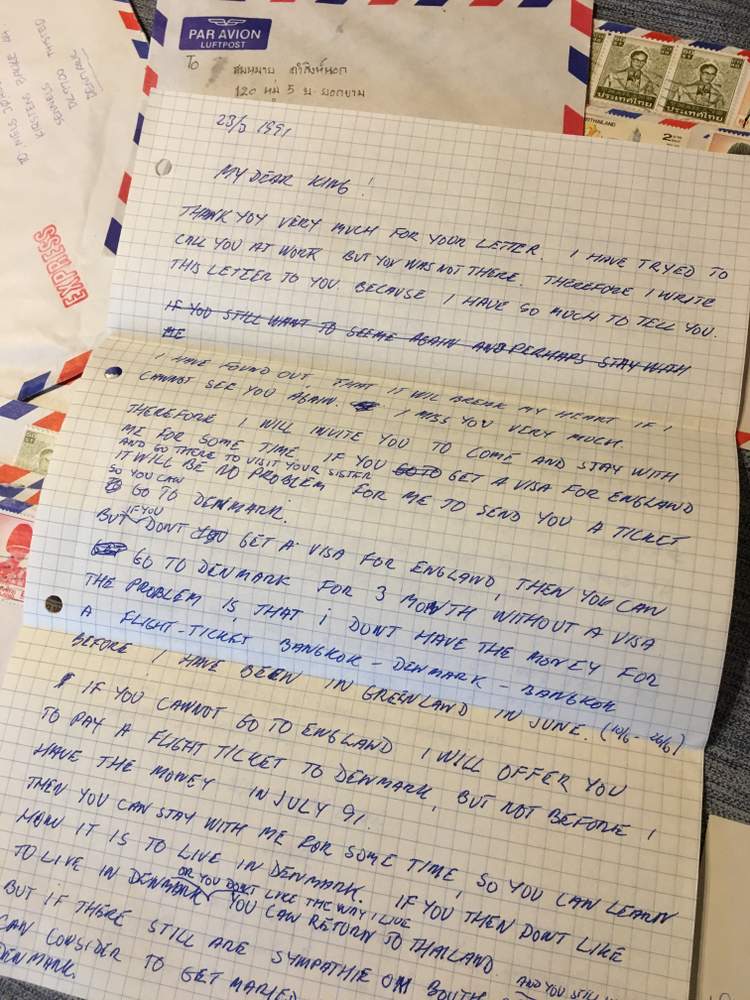 PAR AVION
LUFTPOST
To
120 หมู่ 5
EXPRESS
ประเทศไทย
ประเทศไทย
THAILAND
DENMARK
23/3 1991
MY DEAR KING!
THANK YOY VERY MUCH FOR YOUR LETTER. I HAVE TRYED TO
CALL YOU AT WORK BUT YOU WAS NOT THERE. THEREFORE I WRITE
THIS LETTER TO YOU. BECAUSE I HAVE SO MUCH TO TELL YOU.
IF YOU STILL WANT TO SEE ME AGAIN AND PERHAPS STAY WITH
ME
I HAVE FOUND OUT, THAT IT WIL BREAK MY HEART IF I
CANNOT SEE YOU AGAIN. I MISS YOU VERY MUCH.
THEREFORE I WILL INVITE YOU TO COME AND STAY WITH
ME FOR SOME TIME. IF YOU GO TO GET A VISA FOR ENGLAND
AND GO THERE TO VISIT YOUR SISTER
IT WILL BE NO PROBLEM FOR ME TO SEND YOU A TICKET
SO YOU CAN
GO TO DENMARK.
IF YOU
BUT DONT GET A VISA FOR ENGLAND, THEN YOU CAN
GO TO DENMARK FOR 3 MONTH WITHOUT A VISA
THE PROBLEM IS, THAT I DONT HAVE THE MONEY FOR
A FLIGHT-TICKET BANGKOK - DENMARK - BANGKOK
BEFORE I HAVE BEEN IN GREENLAND IN JUNE. (10/6 - 26/6)
IF YOU CANNOT GO TO ENGLAND I WILL OFFER YOU
TO PAY A FLIGHT TICKET TO DENMARK, BUT NOT BEFORE I
HAVE THE MONEY IN JULY 91.
THEN YOU CAN STAY WITH ME FOR SOME TIME, SO YOU CAN LEARN
HOW IT IS TO LIVE IN DENMARK. IF YOU THEN DONT LIKE
OR YOU DONT LIKE THE WAY I LIVE
TO LIVE IN DENMARK YOU CAN RETURN TO THAILAND.
AND YOU STILL
BUT IF THERE STILL ARE SYMPATHIE ON BOUTH
CAN CONSIDER TO GET MARIED
DENMARK.